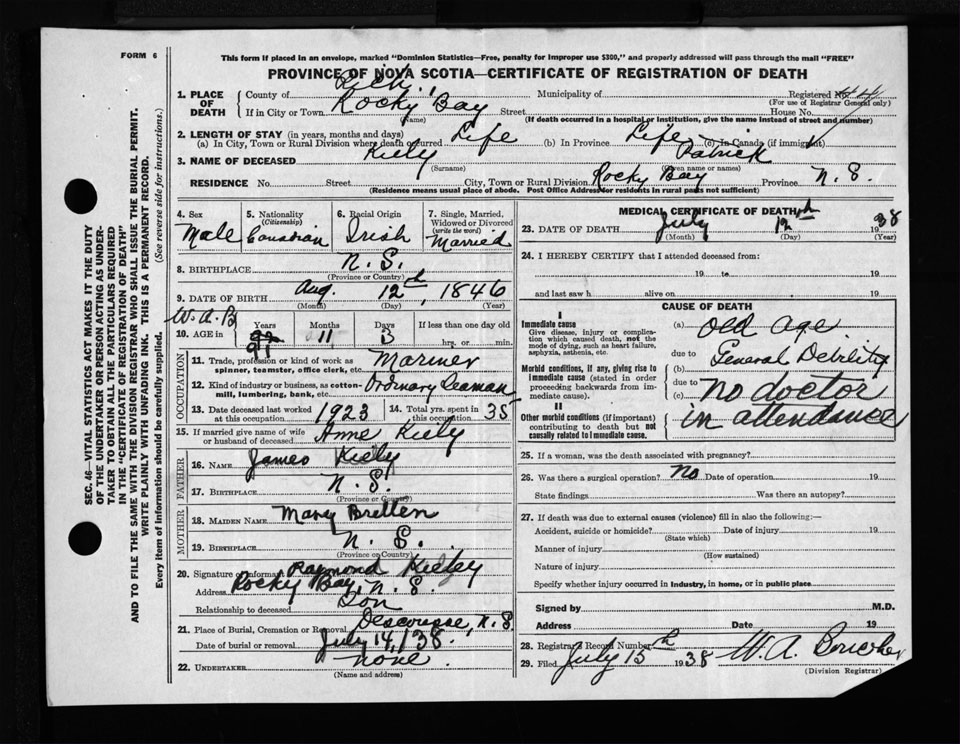 FORM 6
This form if placed in an envelope, marked "Dominion Statistics—Free, penalty for improper use $300," and properly addressed will pass through the mail "FREE"
PROVINCE OF NOVA SCOTIA—CERTIFICATE OF REGISTRATION OF DEATH
SEC. 46—VITAL STATISTICS ACT MAKES IT THE DUTY
OF THE UNDERTAKER OR PERSON ACTING AS UNDER-
TAKER TO OBTAIN ALL THE PARTICULARS REQUIRED
IN THE "CERTIFICATE OF REGISTRATION OF DEATH"
AND TO FILE THE SAME WITH THE DIVISION REGISTRAR WHO SHALL ISSUE THE BURIAL PERMIT.
WRITE PLAINLY WITH UNFADING INK. THIS IS A PERMANENT RECORD.
Every item of information should be carefully supplied. (See reverse side for instructions.)
1. PLACE OF DEATH
County of Rich. Municipality of Registered No. 44
(For use of Registrar General only)
If in City or Town Rocky Bay Street House No.
(Name) (If death occurred in a hospital or institution, give the name instead of street and number)
2. LENGTH OF STAY (in years, months and days)
(a) In City, Town or Rural Division where death occurred Life (b) In Province Life (c) In Canada (if immigrant)
3. NAME OF DECEASED Kiely Patrick
(Surname) (Given name or names)
RESIDENCE No. Street City, Town or Rural Division Rocky Bay Province N. S.
(Residence means usual place of abode. Post Office Address for residents in rural parts not sufficient)
4. Sex Male
5. Nationality (Citizenship) Canadian
6. Racial Origin Irish
7. Single, Married, Widowed or Divorced (write the word) Married
8. BIRTHPLACE N. S.
(Province or Country)
9. DATE OF BIRTH Aug. 12th, 1846
(Month) (Day) (Year)
W. A. B
10. AGE in Years 91 Months 11 Days 3 If less than one day old
hrs. or min.
OCCUPATION
11. Trade, profession or kind of work as spinner, teamster, office clerk, etc. Mariner
12. Kind of industry or business, as cotton-mill, lumbering, bank, etc. Ordinary Seaman
13. Date deceased last worked at this occupation 1923
14. Total yrs. spent in this occupation 35
15. If married give name of wife or husband of deceased Anne Kiely
FATHER
16. NAME James Kiely
17. BIRTHPLACE N. S.
(Province or Country)
MOTHER
18. MAIDEN NAME Mary Bretten
19. BIRTHPLACE N. S.
(Province or Country)
20. Signature of informant Raymond Kieley
Address Rocky Bay, N. S.
Relationship to deceased Son
21. Place of Burial, Cremation or Removal Descousse, N. S.
Date of burial or removal July 14, /38.
22. UNDERTAKER none
(Name and address)
MEDICAL CERTIFICATE OF DEATH
23. DATE OF DEATH July 12th 1938
(Month) (Day) (Year)
24. I HEREBY CERTIFY that I attended deceased from:
19 to 19
and last saw h alive on 19
CAUSE OF DEATH
I
Immediate cause
Give disease, injury or complication which caused death, not the mode of dying, such as heart failure, asphyxia, asthenia, etc.
(a) Old Age
due to General Debility
Morbid conditions, if any, giving rise to immediate cause (stated in order proceeding backwards from immediate cause).
(b)
due to
(c) no doctor
in attendance
II
Other morbid conditions (if important) contributing to death but not causally related to immediate cause.
25. If a woman, was the death associated with pregnancy?
26. Was there a surgical operation? no Date of operation 19
State findings Was there an autopsy?
27. If death was due to external causes (violence) fill in also the following:—
Accident, suicide or homicide? Date of injury 19
(State which)
Manner of injury
(How sustained)
Nature of injury
Specify whether injury occurred in industry, in home, or in public place
Signed by M.D.
Address Date 19
28. Registrar's Record Number
29. Filed July 15th 1938 W. A. Boucher
(Division Registrar)